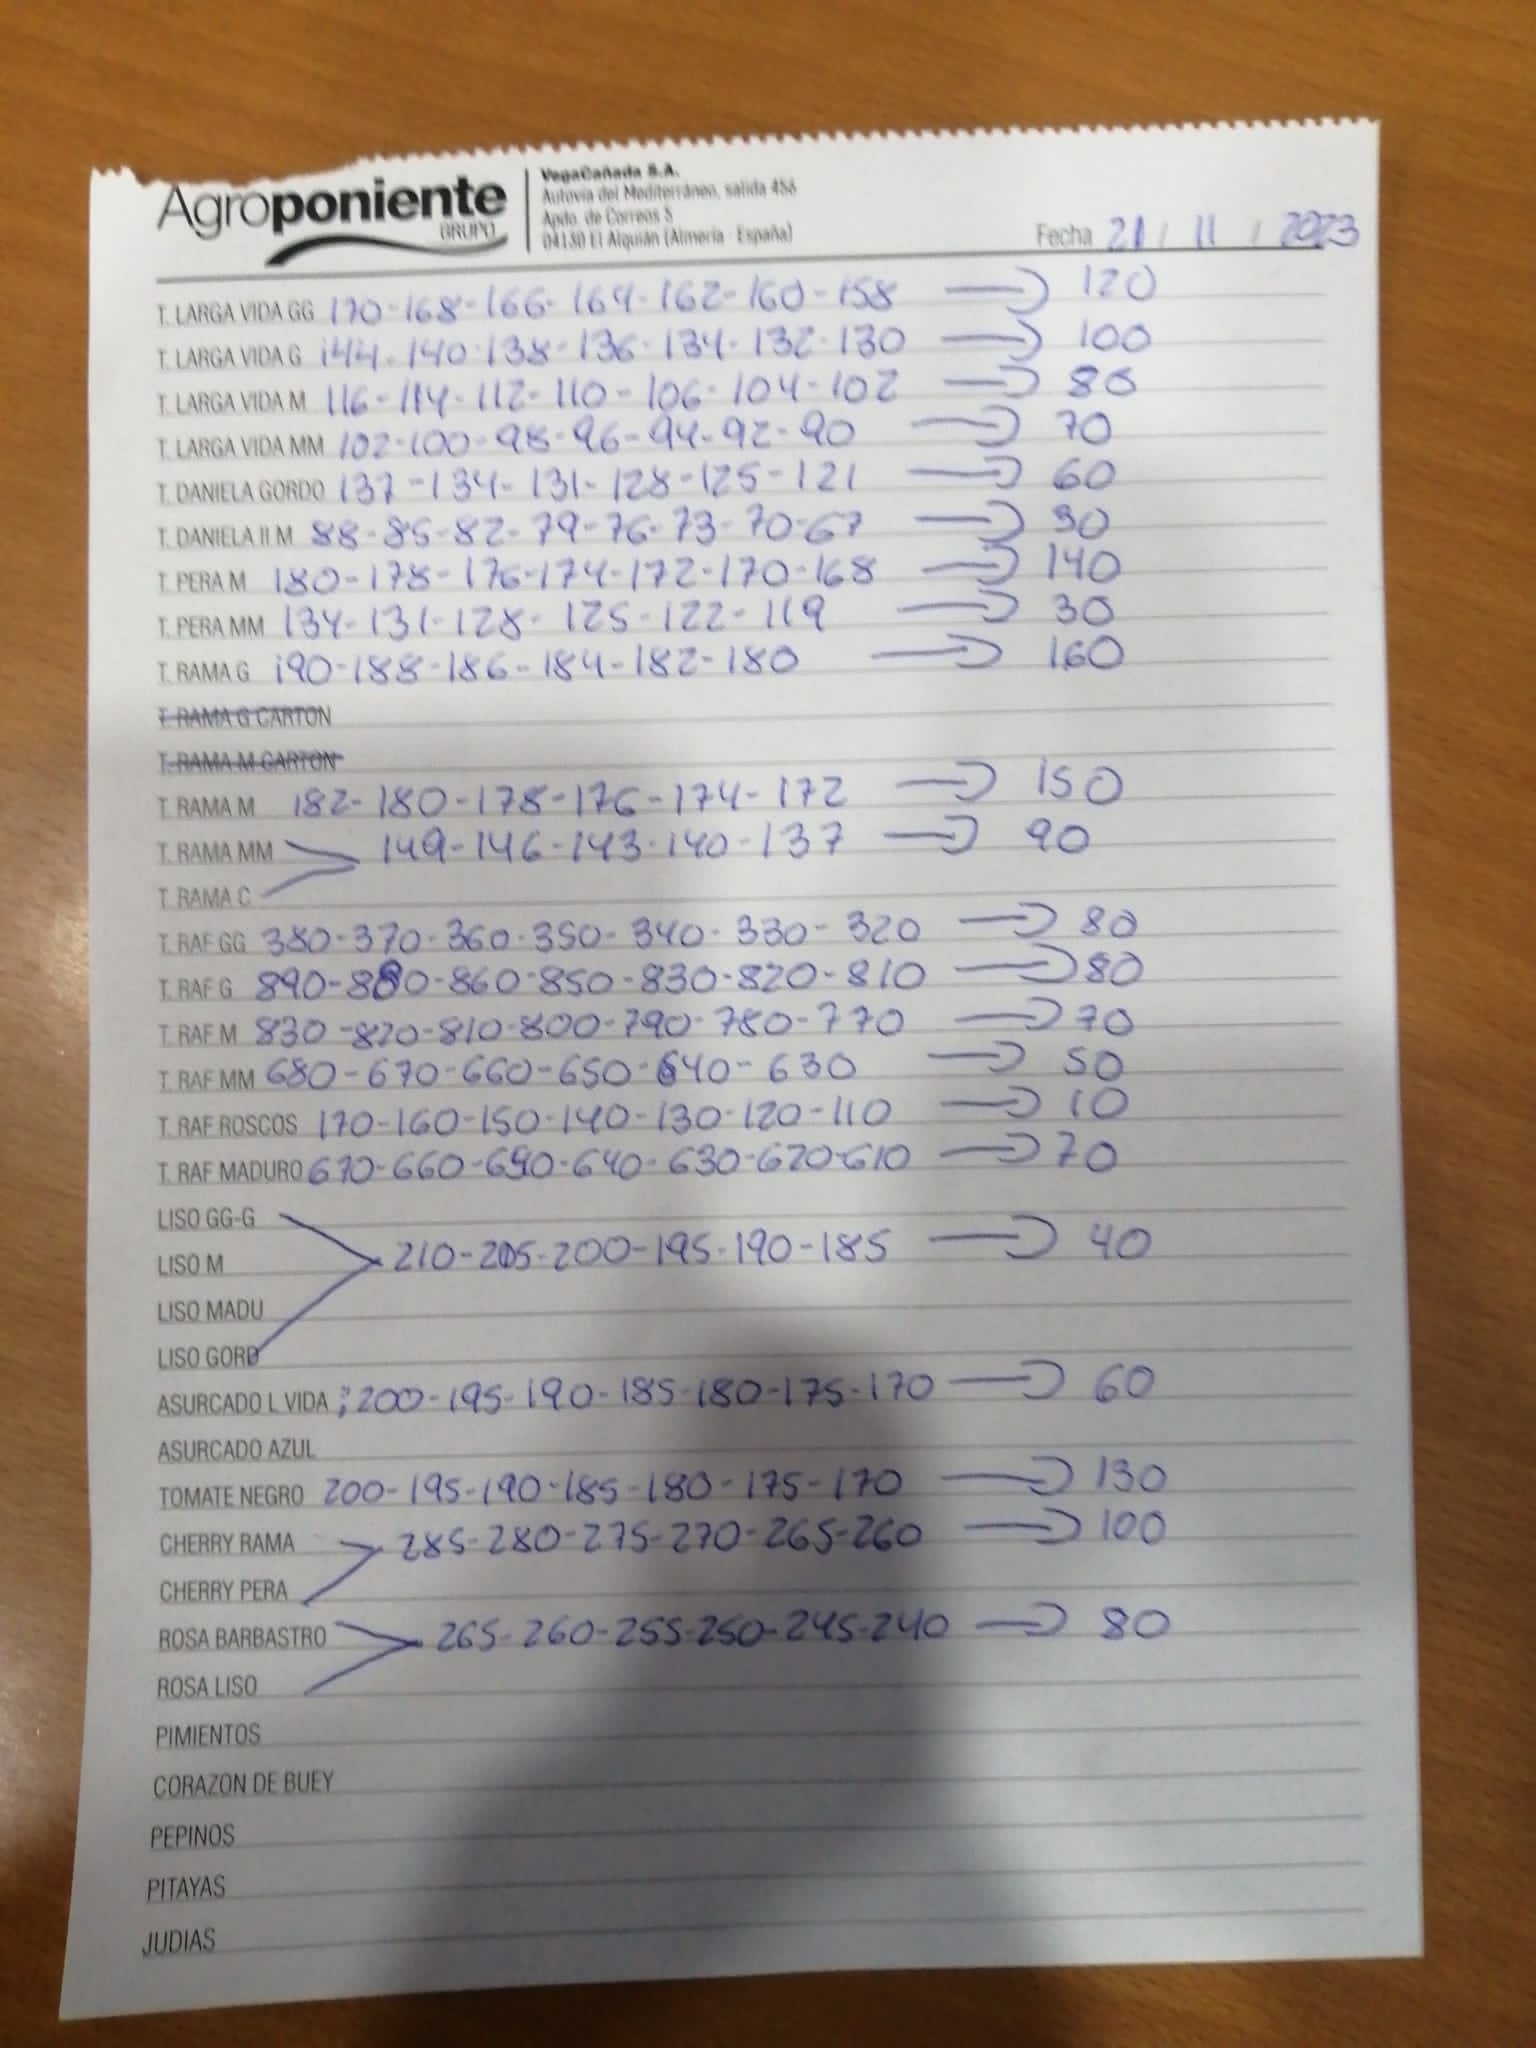 Agroponiente
GRUPO
VegaCañada S.A.
Autovía del Mediterráneo, salida 456
Apdo. de Correos 5
04130 El Alquián (Almería - España)
Fecha 21 / 11 / 2023
T. LARGA VIDA GG 170-168-166-164-162-160-158 → 120
T. LARGA VIDA G 144-140-138-136-134-132-130 → 100
T. LARGA VIDA M 116-114-112-110-106-104-102 → 80
T. LARGA VIDA MM 102-100-98-96-94-92-90 → 70
T. DANIELA GORDO 137-134-131-128-125-121 → 60
T. DANIELA II M 88-85-82-79-76-73-70-67 → 30
T. PERA M 180-178-176-174-172-170-168 → 140
T. PERA MM 134-131-128-125-122-119 → 30
T. RAMA G 190-188-186-184-182-180 → 160
T. RAMA G CARTON
T. RAMA M CARTON
T. RAMA M 182-180-178-176-174-172 → 150
T. RAMA MM 149-146-143-140-137 → 90
T. RAMA C
T. RAF GG 380-370-360-350-340-330-320 → 80
T. RAF G 890-880-860-850-830-820-810 → 80
T. RAF M 830-820-810-800-790-780-770 → 70
T. RAF MM 680-670-660-650-640-630 → 50
T. RAF ROSCOS 170-160-150-140-130-120-110 → 10
T. RAF MADURO 670-660-650-640-630-620-610 → 70
LISO GG-G
LISO M 210-205-200-195-190-185 → 40
LISO MADU
LISO GORD
ASURCADO L VIDA ; 200-195-190-185-180-175-170 → 60
ASURCADO AZUL
TOMATE NEGRO 200-195-190-185-180-175-170 → 130
CHERRY RAMA 285-280-275-270-265-260 → 100
CHERRY PERA
ROSA BARBASTRO 265-260-255-250-245-240 → 80
ROSA LISO
PIMIENTOS
CORAZON DE BUEY
PEPINOS
PITAYAS
JUDIAS